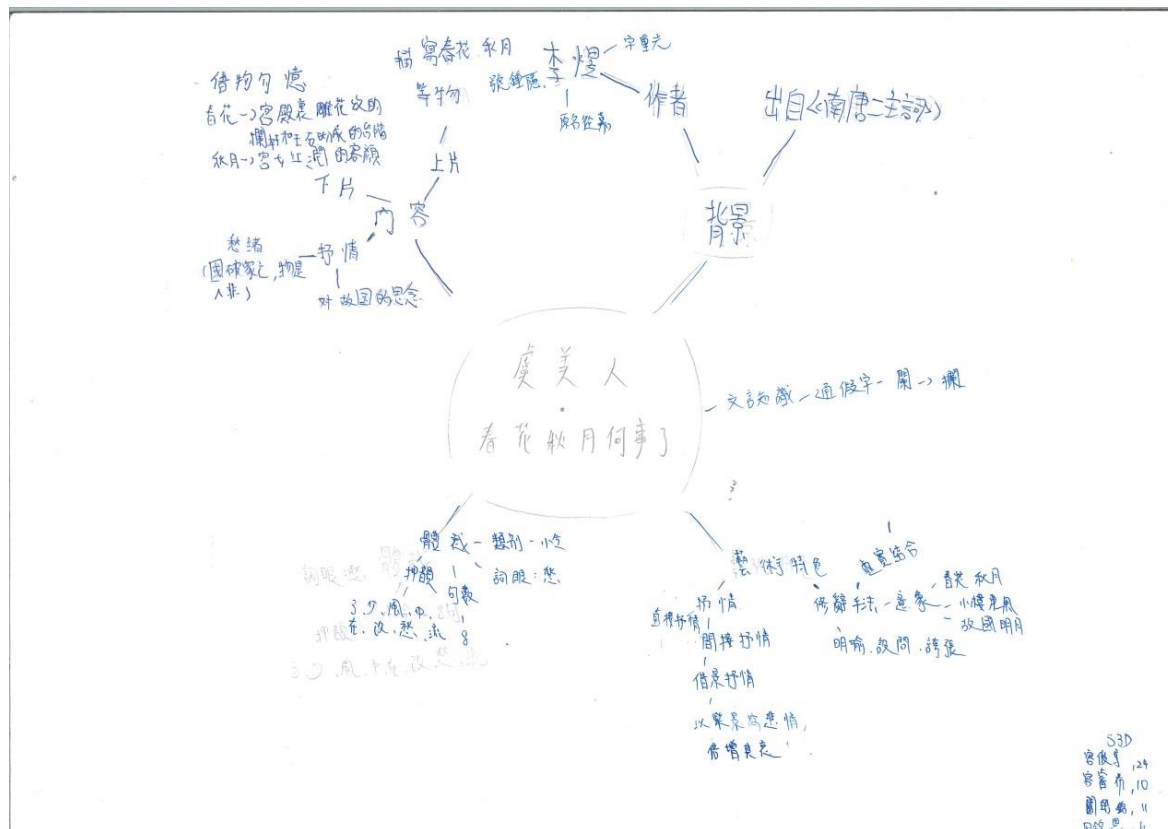 虞美人
·
春花秋月何事了
背景
作者
李煜
字重光
號鍾隱
原名從嘉
出自《南唐二主詞》
內容
上片
描寫春花、秋月
等物
下片
借物勾憶
春花→宮殿裏雕花紋的
欄杆和玉石砌成的台階
秋月→宮女紅潤的容顏
抒情
愁緒
(國破家亡,物是
人非)
对故国的思念
文言知識-通假字-闌→欄
體裁-類別-小令
詞眼:愁
押韻
句數
8
了、少、風、中、
在、改、愁、流
詞眼:愁
體裁
押韻
了、少、風、中、在、改、愁、流
藝術特色
抒情
直接抒情
間接抒情
借景抒情
以樂景寫悲情,
倍增其悲
虛實結合
修辭手法-意象
春花秋月
小樓東風
故國明月
明喻、設問、誇張
?
S3D
,24
,10
,11